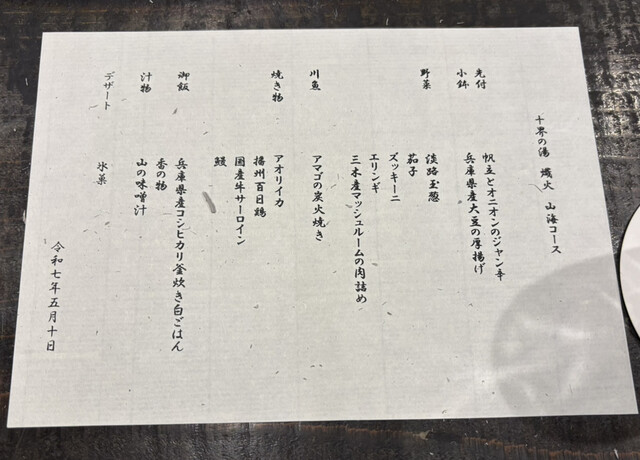 十界の湯 熾火 山海コース
先付 帆立とオニオンのジャン辛
小鉢 兵庫県産大豆の厚揚げ
野菜 淡路玉葱
茄子
ズッキーニ
エリンギ
三木産マッシュルームの肉詰め
川魚 アマゴの炭火焼き
焼き物 アオリイカ
播州百日鶏
国産牛サーロイン
鰻
御飯 兵庫県産コシヒカリ釜炊き白ごはん
香の物
汁物 山の味噌汁
デザート 氷菓
令和七年五月十日